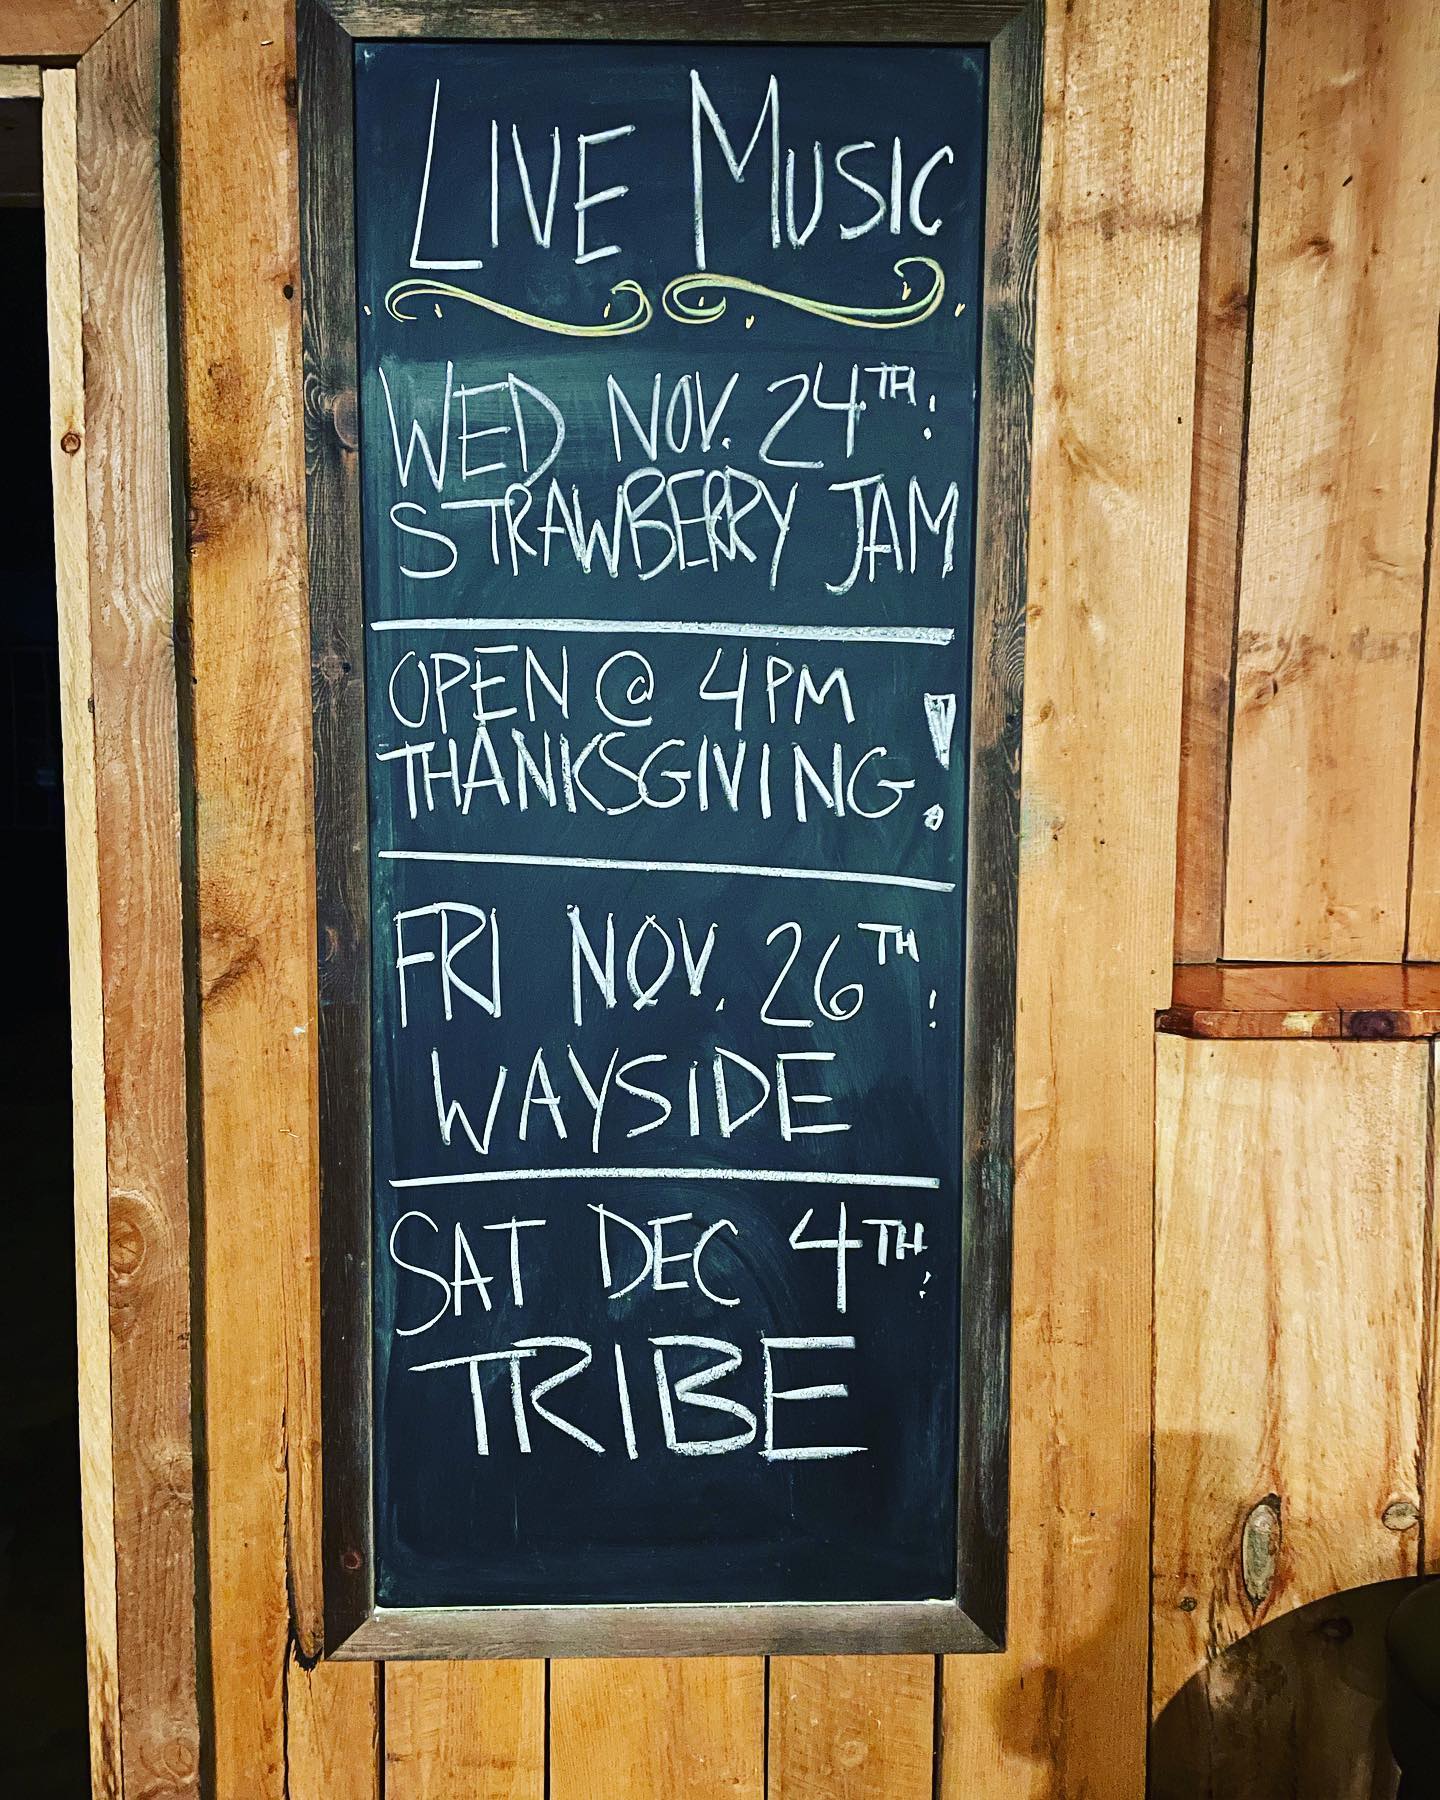 LIVE MUSIC
WED NOV. 24TH:
STRAWBERRY JAM
OPEN @ 4PM
THANKSGIVING!
FRI NOV. 26TH:
WAYSIDE
SAT DEC 4TH:
TRIBE